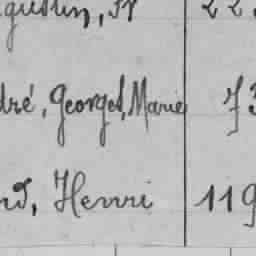 gustin, Jr 22
dré, Georges, Marie 73
nd, Henri 119